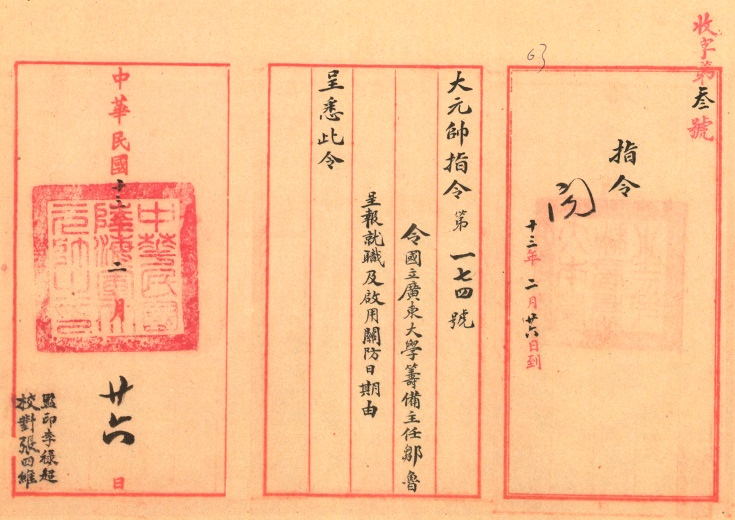 收字第叁號
63
指令
閱
十三年二月廿六日到
大元帥指令第一七四號
令國立廣東大學籌備主任鄒魯
呈報就職及啟用關防日期由
呈悉此令
中華民國十三年二月廿六日
中華民國陸海軍大元帥之印
監印李祿超
校對張四維